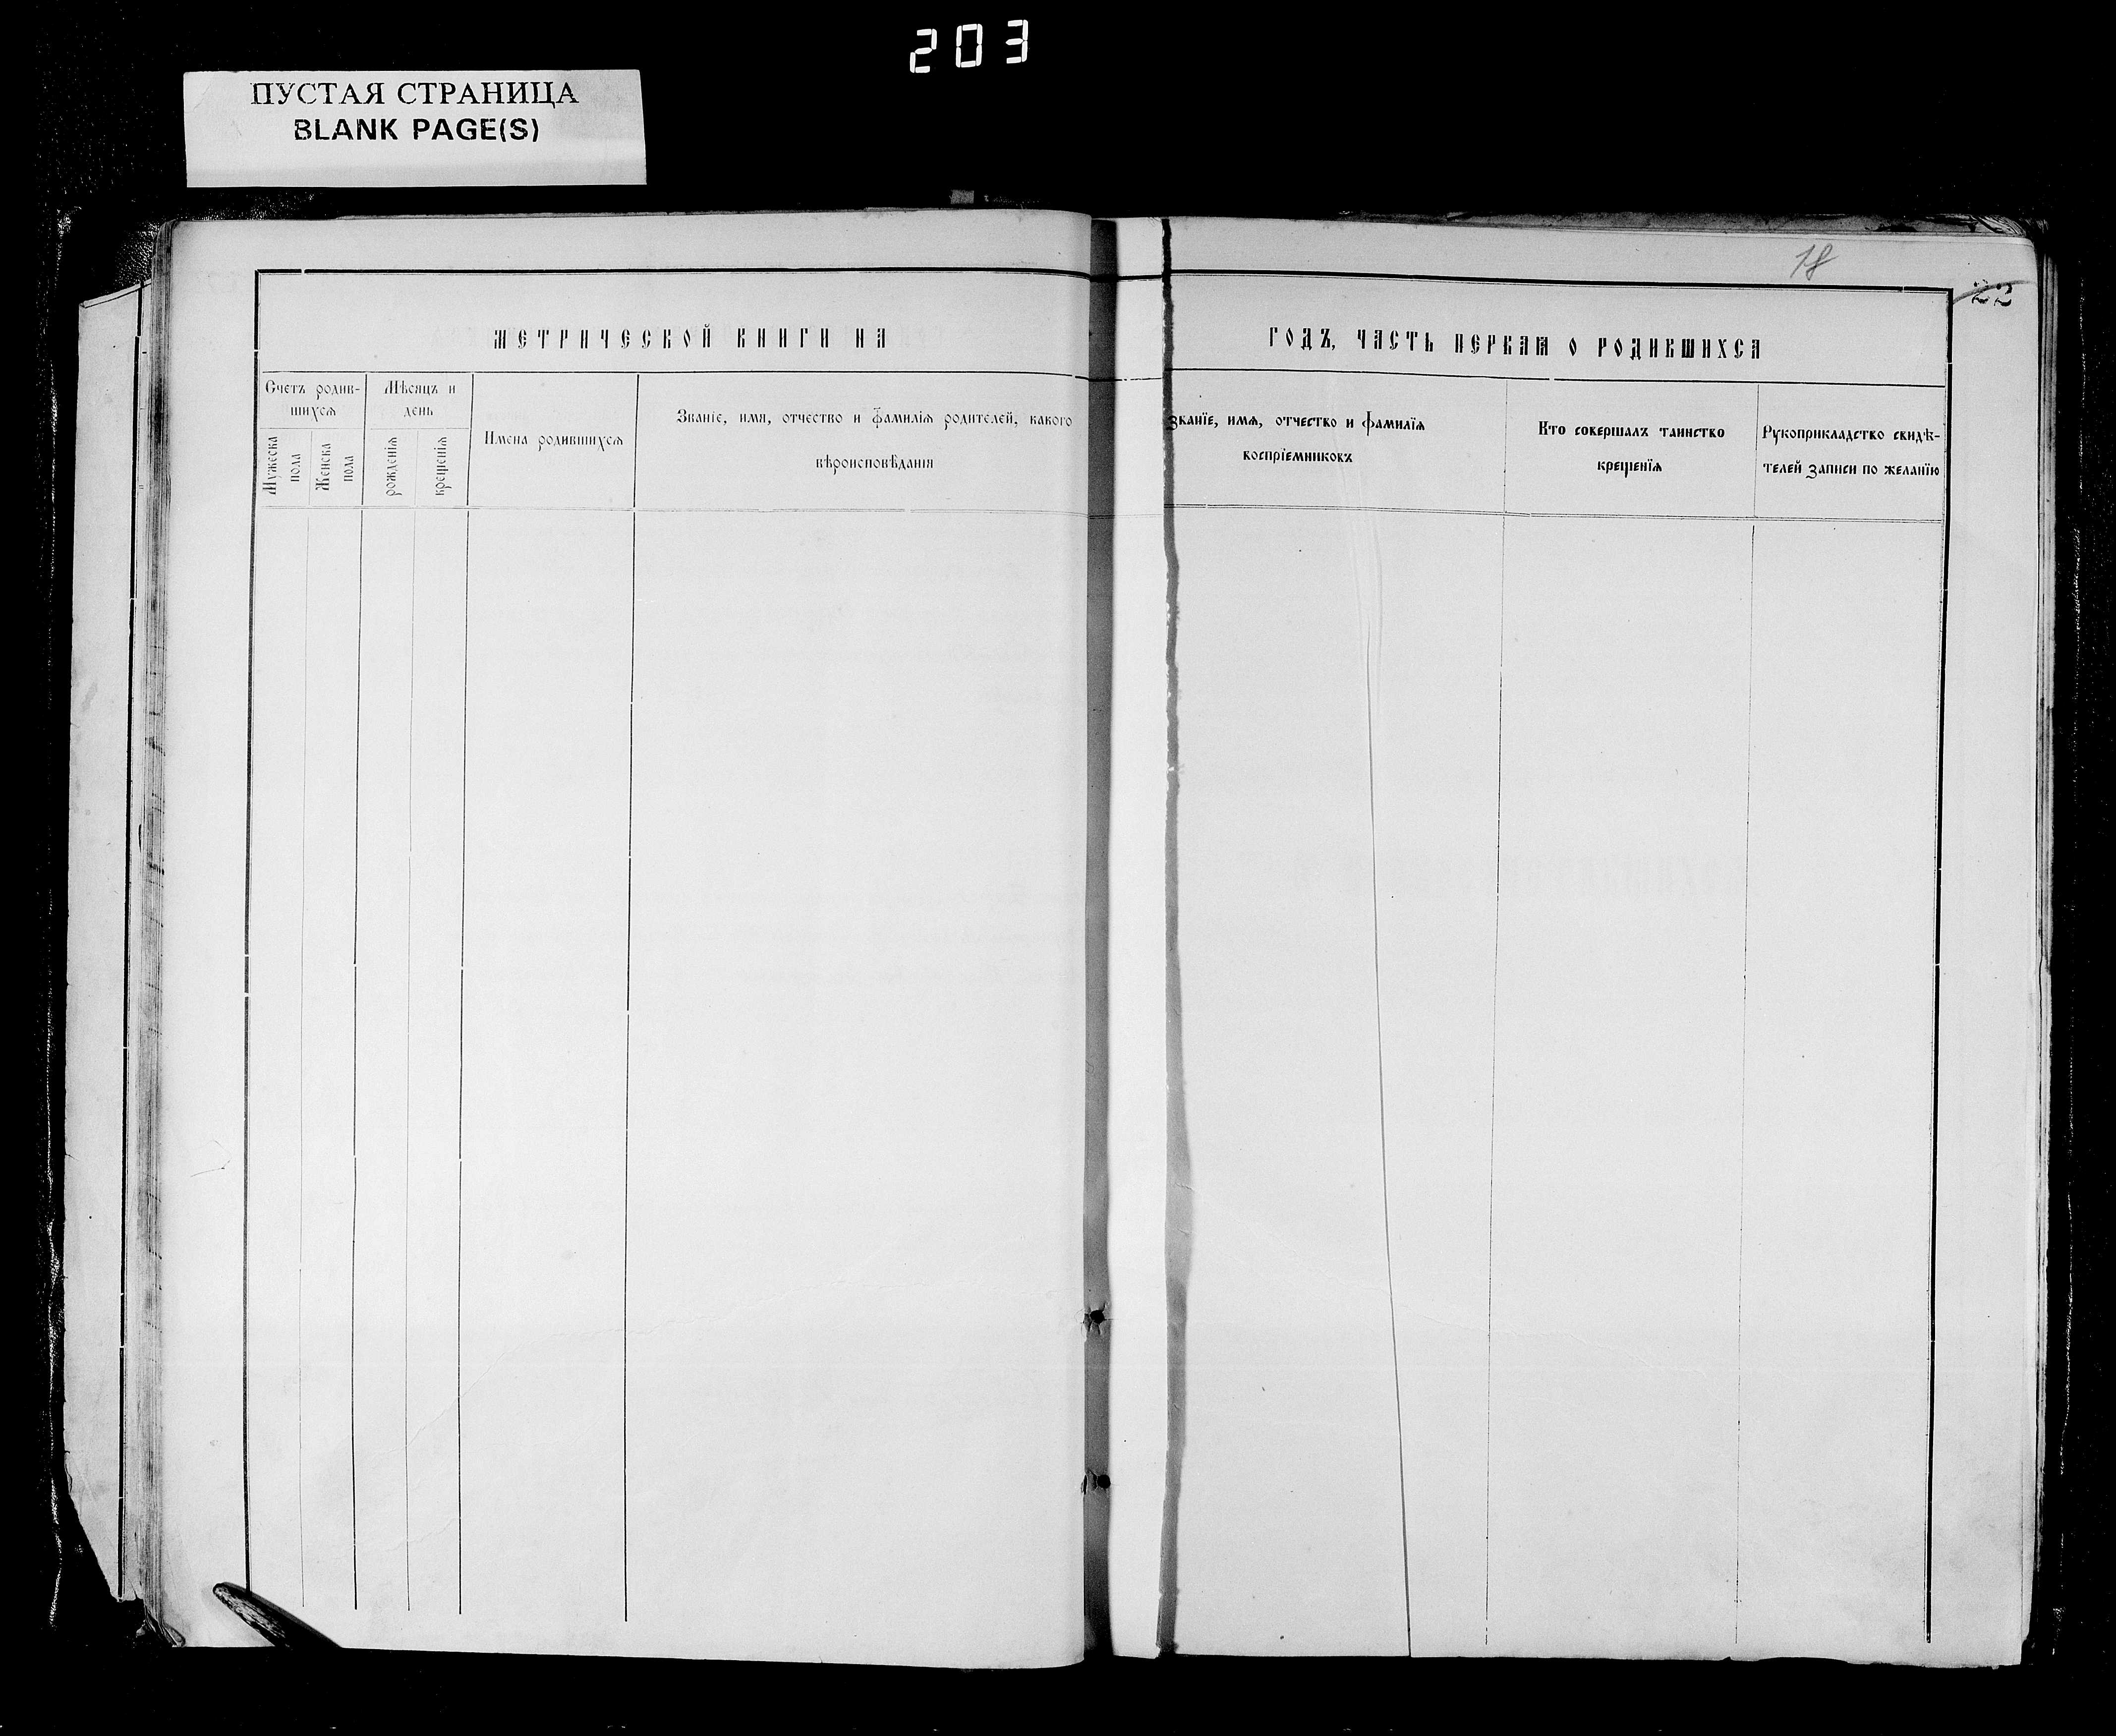 203
ПУСТАЯ СТРАНИЦА
BLANK PAGE(S)
18
22
МЕТРИЧЕСКОЙ КНИГИ НА
ГОДЪ, ЧАСТЬ ПЕРВАЯ О РОДИВШИХСЯ
Счетъ родив-
шихся
Мужеска
пола
Женска
пола
Мѣсяцъ и
день
рожденія
крещенія
Имена родившихся
Званіе, имя, отчество и фамилія родителей, какого
вѣроисповѣданія
Званіе, имя, отчество и фамилія
воспріемниковъ
Кто совершалъ таинство
крещенія
Рукоприкладство свидѣ-
телей записи по желанію